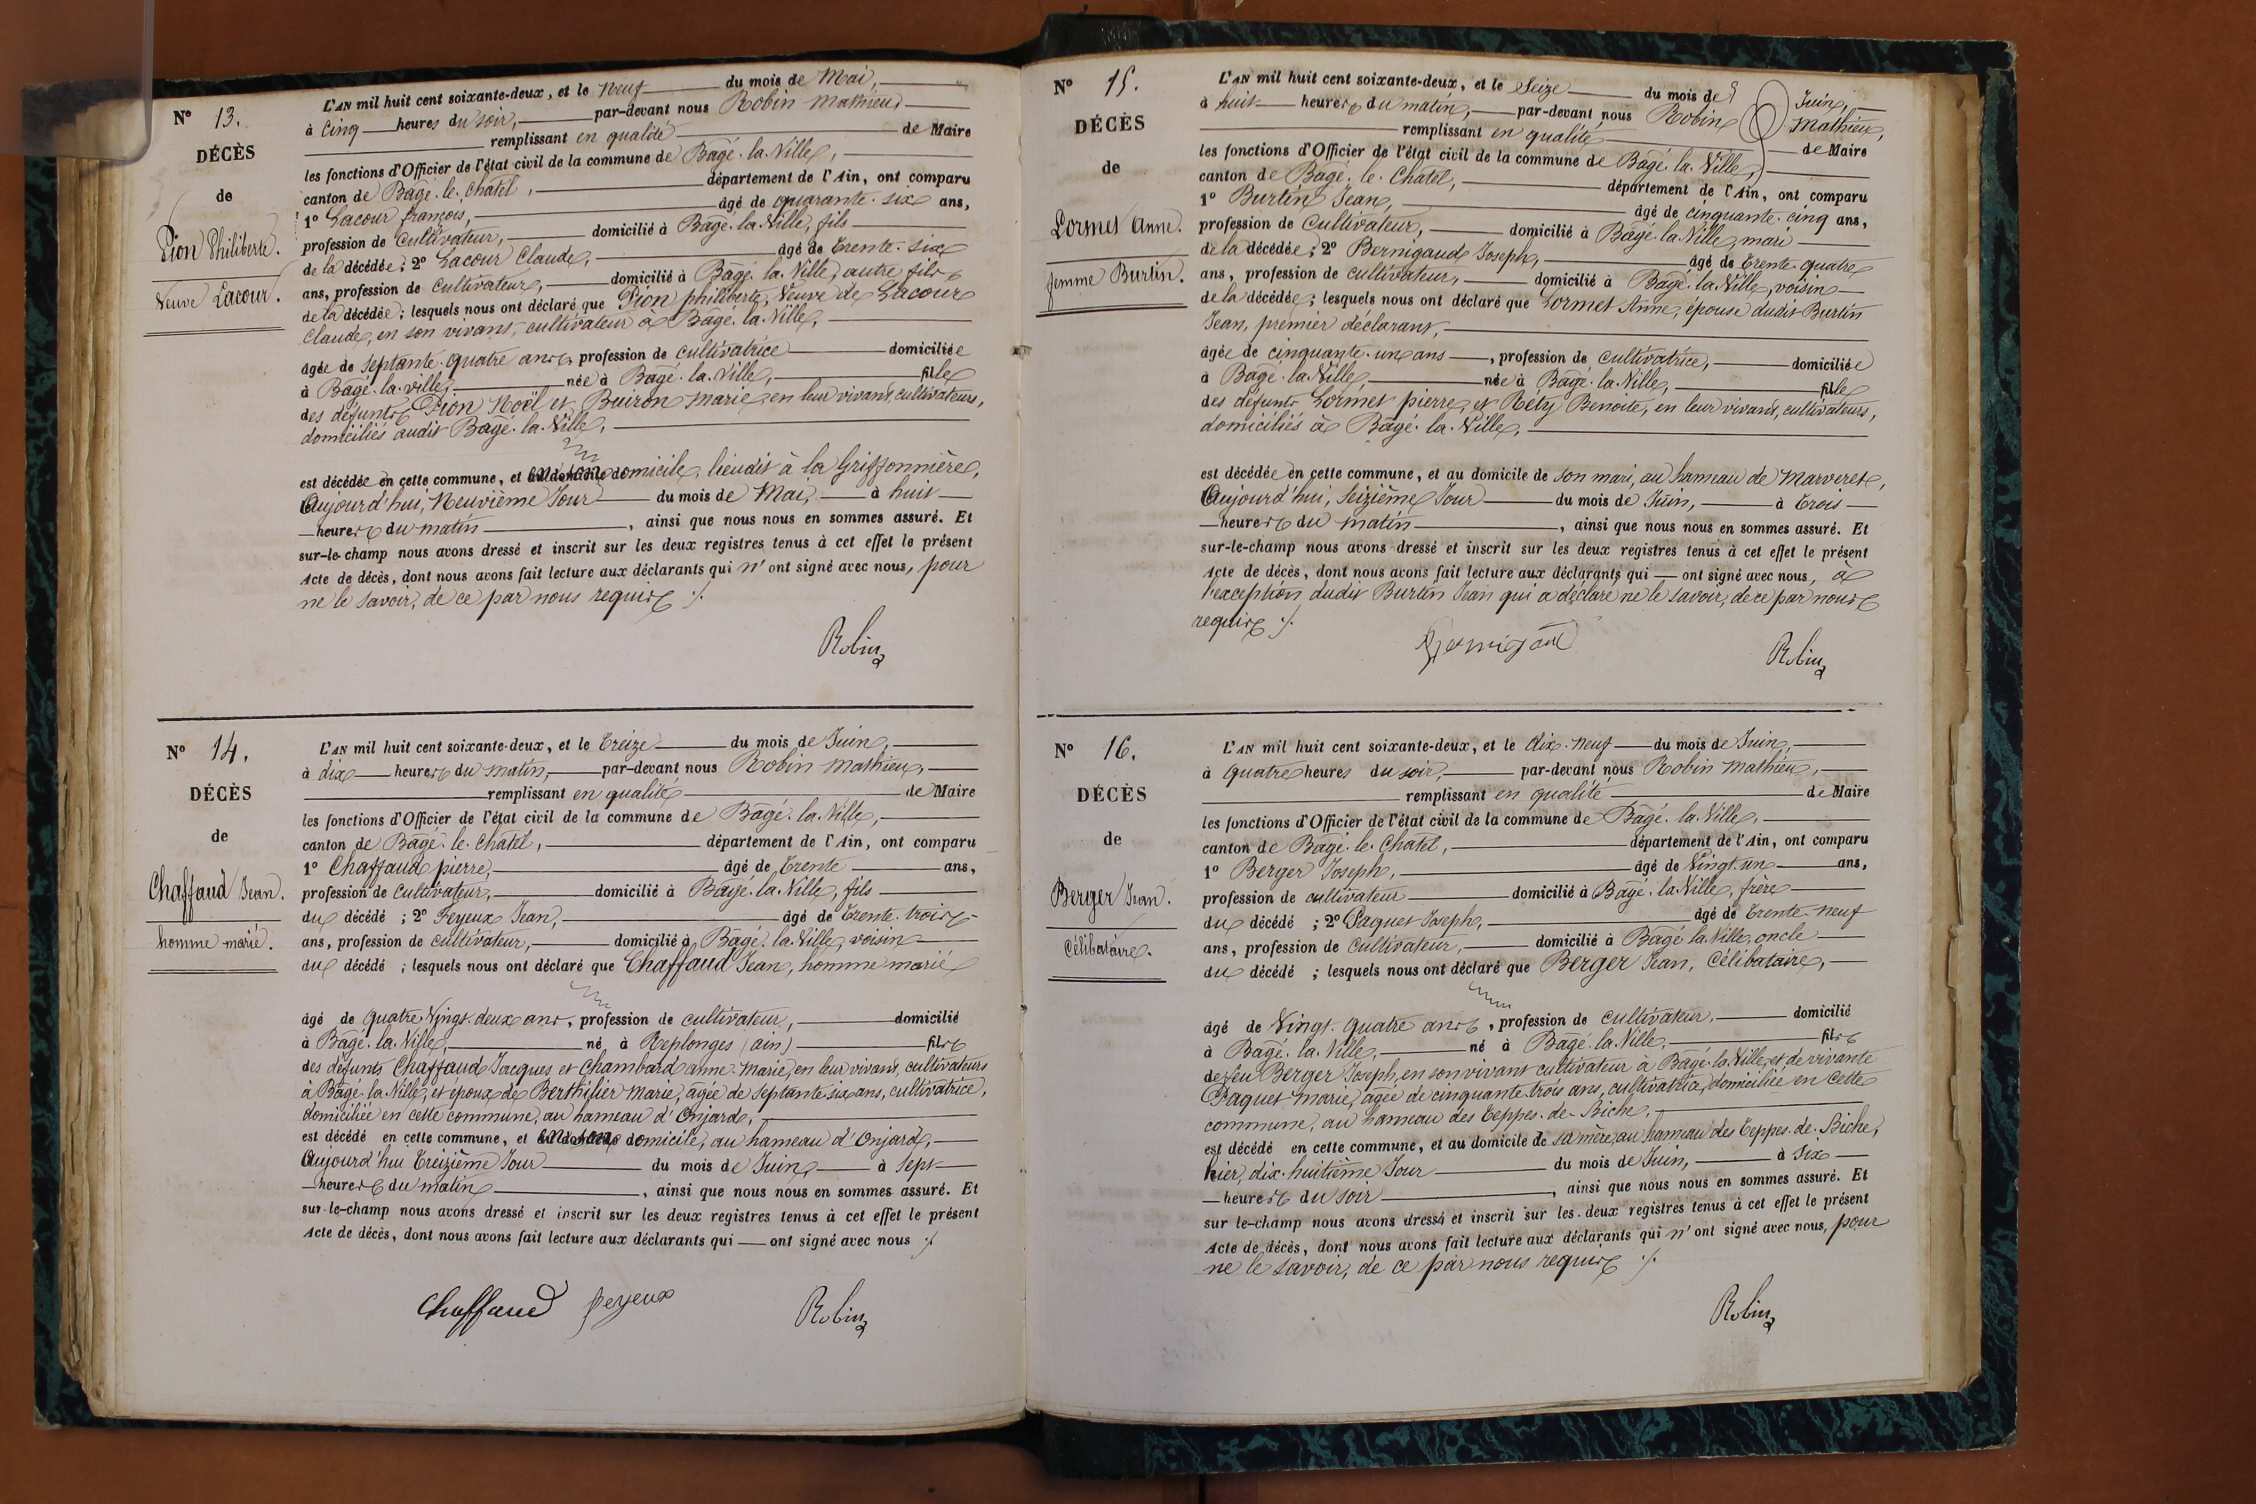 N° 13.
DÉCÈS
de
Pion Philiberte.
Veuve Lacour.
L'AN mil huit cent soixante-deux, et le Neuf du mois de Mai,
à Cinq heures du soir, par-devant nous Robin Mathieu,
remplissant en qualité de Maire
les fonctions d'Officier de l'état civil de la commune de Bagé-la-Ville,
canton de Bagé-le-Chatel, département de l'Ain, ont comparu
1° Lacour françois, âgé de quarante-six ans,
profession de Cultivateur, domicilié à Bagé-la-Ville, fils
de la décédée; 2° Lacour Claude, âgé de Trente-six
ans, profession de Cultivateur, domicilié à Bagé-la-Ville, autre fils
de la décédée; lesquels nous ont déclaré que Pion philiberte, Veuve de Lacour
Claude, en son vivant, cultivateur à Bagé-la-Ville,
âgée de Septante-quatre ans, profession de Cultivatrice domiciliée
à Bagé-la-ville, née à Bagé-la-Ville, fille
des défunts Pion Noël et Buiron Marie, en leur vivant cultivateurs,
domiciliés audit Bagé-la-Ville,
est décédée en cette commune, et en son domicile, lieudit à la Griffonnière,
Aujourd'hui, Neuvième Jour du mois de Mai, à huit
heures du matin, ainsi que nous nous en sommes assuré. Et
sur-le-champ nous avons dressé et inscrit sur les deux registres tenus à cet effet le présent
Acte de décès, dont nous avons fait lecture aux déclarants qui n'ont signé avec nous, pour
ne le savoir, de ce par nous requis ./.
Robin
N° 14.
DÉCÈS
de
Chaffaud Jean.
homme marié.
L'AN mil huit cent soixante-deux, et le Treize du mois de Juin,
à dix heures du matin, par-devant nous Robin Mathieu,
remplissant en qualité de Maire
les fonctions d'Officier de l'état civil de la commune de Bagé-la-Ville,
canton de Bagé-le-Chatel, département de l'Ain, ont comparu
1° Chaffaud pierre, âgé de Trente ans,
profession de Cultivateur, domicilié à Bagé-la-Ville, fils
du décédé; 2° Feyeux Jean, âgé de Trente-trois
ans, profession de cultivateur, domicilié à Bagé-la-Ville, voisin
du décédé; lesquels nous ont déclaré que Chaffaud Jean, homme marié
âgé de quatre Vingt-deux ans, profession de cultivateur, domicilié
à Bagé-la-Ville, né à Replonges (ain) fils
des défunts Chaffaud Jacques et Chambard anne-Marie, en leur vivant, cultivateurs
à Bagé-la-Ville, et époux de Berthilier Marie, âgée de Septante six ans, cultivatrice,
domiciliée en cette commune, au hameau d'Onjard,
est décédé en cette commune, et en son domicile, au hameau d'Onjard,
Aujourd'hui Treizième Jour du mois de Juin, à Sept
heures du matin, ainsi que nous nous en sommes assuré. Et
sur-le-champ nous avons dressé et inscrit sur les deux registres tenus à cet effet le présent
Acte de décès, dont nous avons fait lecture aux déclarants qui ont signé avec nous ./.
Chaffaud feyeux Robin
N° 15.
DÉCÈS
de
Lormet Anne.
femme Burtin.
L'AN mil huit cent soixante-deux, et le Seize du mois de Juin,
à huit heures du matin, par-devant nous Robin Mathieu,
remplissant en qualité de Maire
les fonctions d'Officier de l'état civil de la commune de Bagé-la-Ville,
canton de Bagé-le-Chatel, département de l'Ain, ont comparu
1° Burtin Jean, âgé de cinquante-cinq ans,
profession de Cultivateur, domicilié à Bagé-la-Ville, mari
de la décédée; 2° Bernigaud Joseph, âgé de Trente-quatre
ans, profession de cultivateur, domicilié à Bagé-la-Ville, voisin
de la décédée; lesquels nous ont déclaré que Lormet Anne, épouse dudit Burtin
Jean, premier déclarant,
âgée de cinquante-un ans, profession de cultivatrice, domiciliée
à Bagé-la-Ville, née à Bagé-la-Ville, fille
des défunts Lormet pierre, et Réty Benoite, en leur vivant, cultivateurs,
domiciliés à Bagé-la-Ville,
est décédée en cette commune, et au domicile de son mari, au hameau de Marveret,
Aujourd'hui, Seizième Jour du mois de Juin, à Trois
heures du matin, ainsi que nous nous en sommes assuré. Et
sur-le-champ nous avons dressé et inscrit sur les deux registres tenus à cet effet le présent
Acte de décès, dont nous avons fait lecture aux déclarants qui ont signé avec nous, à
l'exception dudit Burtin Jean qui a déclaré ne le savoir, de ce par nous
requis ./.
Bernigaud Robin
N° 16.
DÉCÈS
de
Berger Jean.
Célibataire.
L'AN mil huit cent soixante-deux, et le dix-neuf du mois de Juin,
à quatre heures du soir, par-devant nous Robin Mathieu,
remplissant en qualité de Maire
les fonctions d'Officier de l'état civil de la commune de Bagé-la-Ville,
canton de Bagé-le-Chatel, département de l'Ain, ont comparu
1° Berger Joseph, âgé de Vingt-un ans,
profession de cultivateur domicilié à Bagé-la-Ville, frère
du décédé; 2° Paquet Joseph, âgé de Trente-neuf
ans, profession de cultivateur, domicilié à Bagé-la-Ville, oncle
du décédé; lesquels nous ont déclaré que Berger Jean, célibataire,
âgé de Vingt-quatre ans, profession de cultivateur, domicilié
à Bagé-la-Ville, né à Bagé-la-Ville, fils
de feu Berger Joseph, en son vivant cultivateur à Bagé-la-Ville, et de vivante
Paquet Marie, âgée de cinquante-trois ans, cultivatrice, domiciliée en cette
commune, au hameau des Teppes-de-Biche,
est décédé en cette commune, et au domicile de sa mère, au hameau des Teppes-de-Biche,
hier, dix-huitième Jour du mois de Juin, à Six
heures du soir, ainsi que nous nous en sommes assuré. Et
sur le-champ nous avons dressé et inscrit sur les deux registres tenus à cet effet le présent
Acte de décès, dont nous avons fait lecture aux déclarants qui n'ont signé avec nous, pour
ne le savoir, de ce par nous requis ./.
Robin